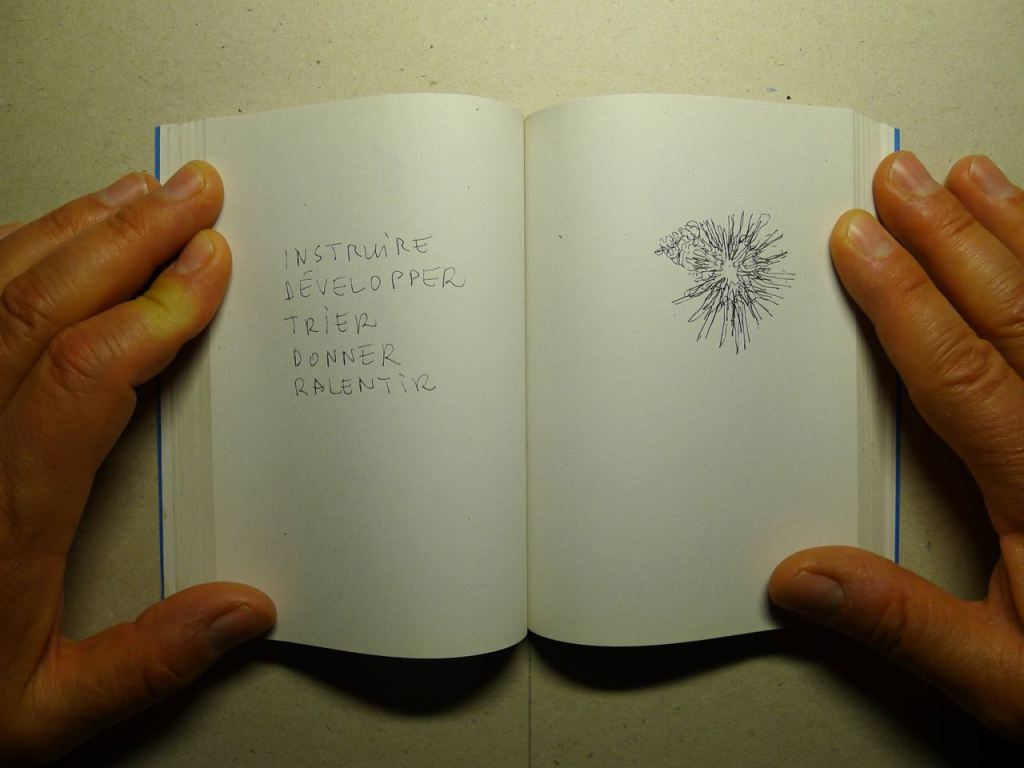 INSTRUIRE
DÉVELOPPER
TRIER
DONNER
RALENTIR